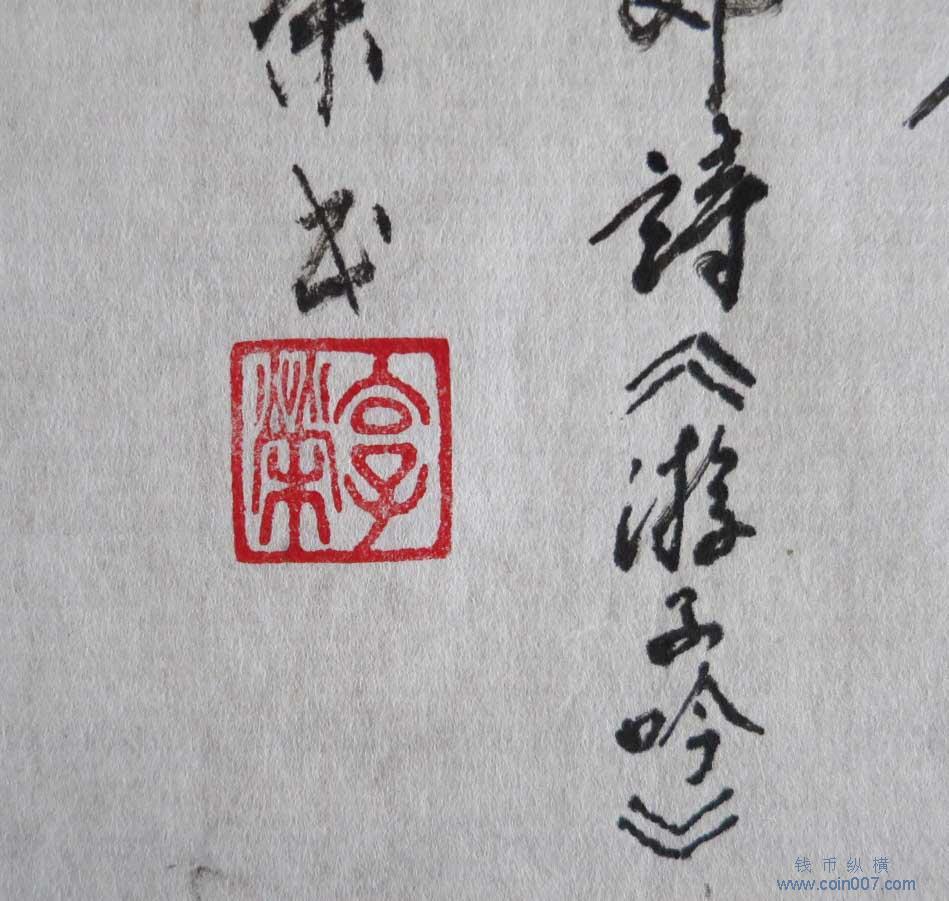 詩《游子吟》
书
享榮
钱币纵横
www.coin007.com